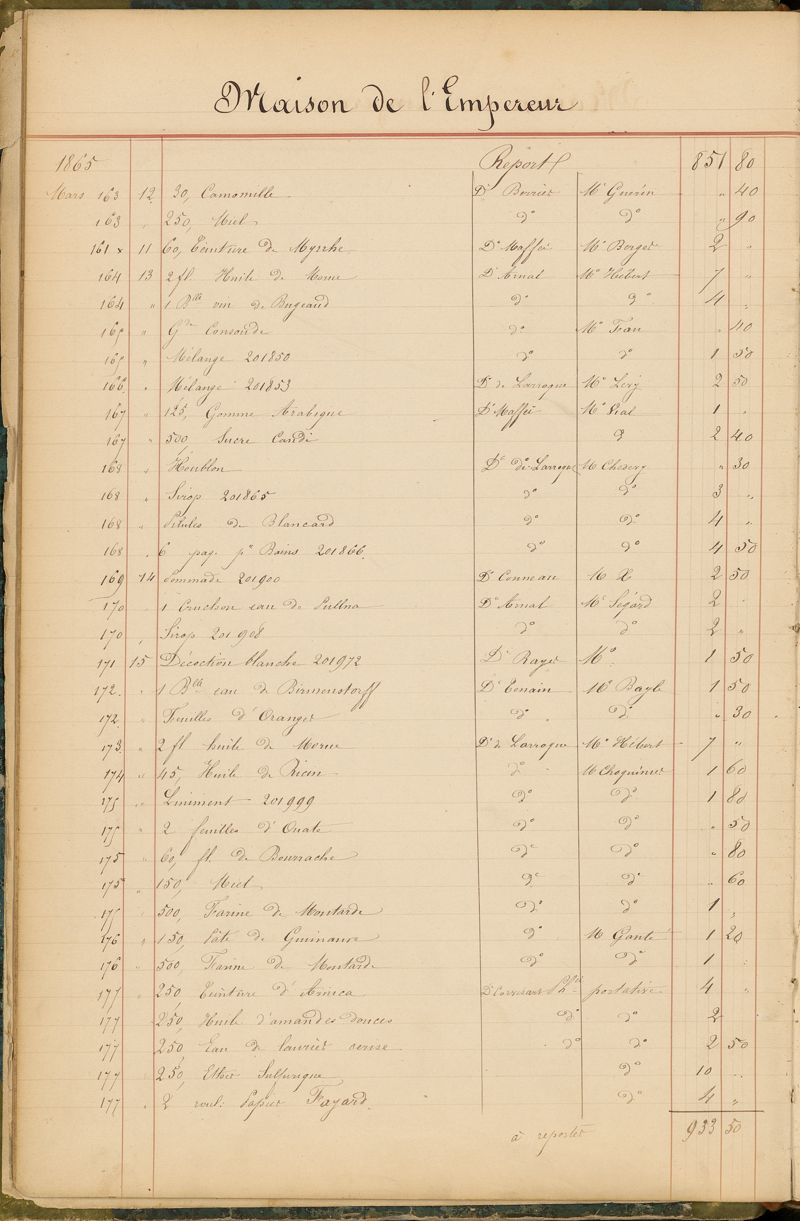 Maison de l'Empereur
1865 Report 851 80
Mars 163 12 30, Camomille Dr Berrier Mr Guérin " 40
163 " 250, Miel do do " 90
161 x 11 60, Teinture de Myrrhe Dr Maffei Mr Berger 2 "
164 13 2 fl. Huile de Morue Dr Arnal Mr Hébert 7 "
164 " 1 Blle vin de Bugeaud do do 4 "
165 " Gde Consoude do Mr " 40
165 " Mélange 201850 do do 1 50
166 " Mélange 201853 Dr de Larroque Mr Lévy 2 50
167 " 125, Gomme Arabique Dr Maffei Mr Vial 1 "
167 " 500, Sucre Candi do 2 40
168 " Houblon Dr de Larroque M " 30
168 " Sirop 201865 do do 3 "
168 " Pilules de Blancard do do 4 "
168 " 6 paq. pr Bains 201866 do do 4 50
169 14 Pommade 201900 Dr Conneau M X 2 50
170 1 Cruchon eau de Pullna Dr Arnal Mr Ségard 2 "
170 " Sirop 201908 do do 2 "
171 15 Décoction blanche 201972 Dr Rayer Mr 1 50
172 " 1 Blle eau de Birmenstorff Dr Tenain Mr Bayle 1 50
172 " Feuilles d'Oranger do do " 30
173 " 2 fl huile de Morue Dr de Larroque Mr Hébert 7 "
174 " 45, Huile de Ricin do M Choquinier 1 60
175 " Liniment 201999 do do 1 80
175 " 2 feuilles d'Ouate do do " 50
175 " 60, fl. de Bourrache do do " 80
175 " 150, Miel do do " 60
175 " 500, Farine de Moutarde do do 1 "
176 " 150, Pâté de Guimauve do M Ganté 1 20
176 " 500, Farine de Moutarde do do 1 "
177 " 250, Teinture d'Arnica Dr Corvisart Phie portative 4 "
177 250, Huile d'amandes douces do do 2
177 250, Eau de laurier cerise do do 2 50
177 250, Ether Sulfurique do 10 "
177 " 2 roul. Papier Fayard do 4 "
à reporter 933 50